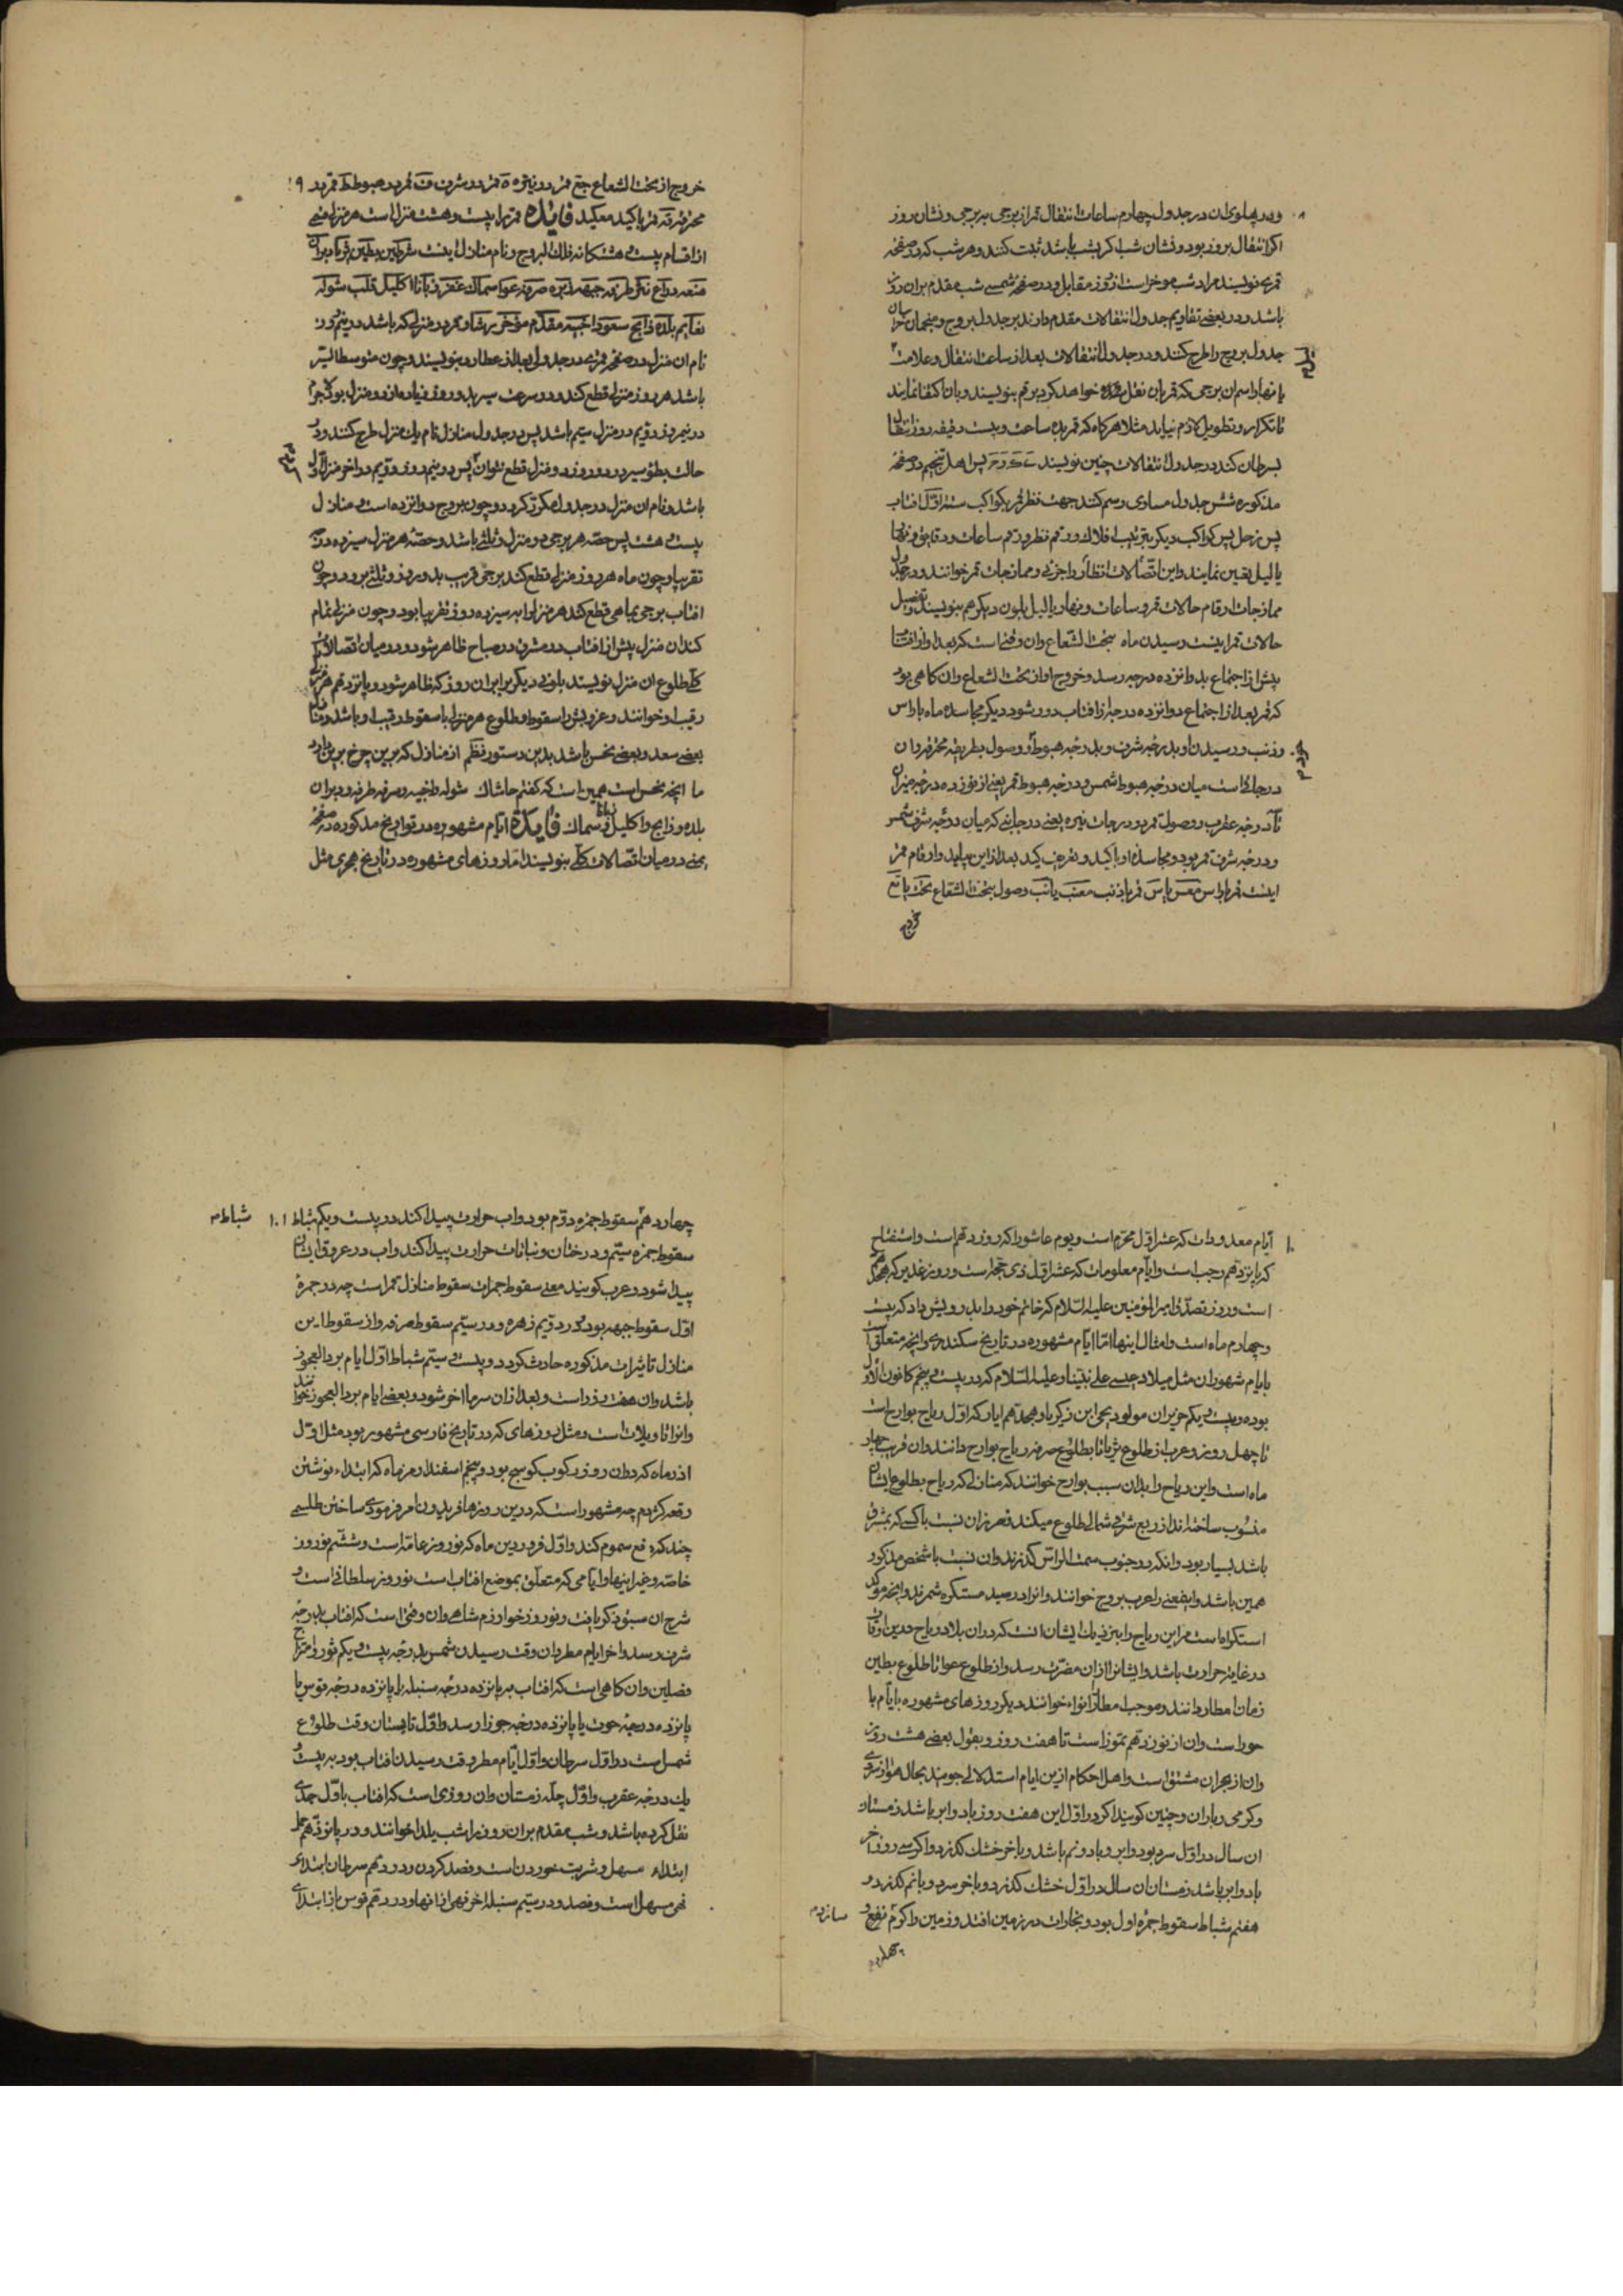 و در پهلوی ان در جدول چهارم ساعات انتقال قمر از برجی به برجی و نشان روز
اکر انتقال بروز بود و نشان شب اکر بشب باشد ثبت کنند و هر شب که در صفحه
قمری نویسند مراد شب موخر است از روز مقابل و در صفحه شمسی شب مقدم بر ان روز
باشد و در بعضی تقاویم جدول انتقالات مقدم دارند بر جدول بروج و منجمان
جدول بروج را طرح کنند و در جدول انتقالات بعد از ساعت انتقال و علامت
یا نهار اسم ان برجی که قمر بان نقل خواهد کرد برقم بنویسند و بان اکتفا نمایند
تا تکرار و تطویل لازم نیاید مثلا هرکاه که قمر بده ساعت و بیست دقیقه روز انتقال
بسرطان کند در جدول انتقالات چنین نویسند پس اهل تنجیم در صفحه
مذکوره شش جدول مساوی رسم کنند جهت نظر قمر بکواکب سته اول افتاب
پس زحل پس کواکب دیکر بترتیب افلاک و رقم نظر و رقم ساعات و دقایق و نهار
یا لیل تعیین نمایند و این اتصالات انظار را جزیی و ممازجات قمر خوانند و در جدول
ممازجات ارقام حالات قمر و ساعات و نهار یا لیل بلون دیکر هم بنویسند و تفصیل
حالات قمر اینست رسیدن ماه بتحت الشعاع و ان وقتی است که بعد او از افتاب
پیش از اجتماع بدوانزده درجه رسد و خروج او از تحت الشعاع و ان کاهی بود
که قمر بعد از اجتماع دوانزده درجه از افتاب دور شود دیکر مجاسده ماه با راس
و ذنب و رسیدن او بدرجه شرف و بدرجه هبوط و وصول بطریقه محترقه و ان
درجاتی است میان درجه هبوط شمس و درجه هبوط قمر یعنی از نوزده درجه میزان
تا درجه عقرب و وصول قمر بدرجات نیره یعنی درجاتی که میان درجه شرف شمس
و درجه شرف قمر بود و مجاسده او با کید و تعریف کید بعد از این بیاید و ارقام قمر
اینست قمر با راس قمر با ذنب وصول بتحت الشعاع
خروج
خروج از تحت الشعاع قمر در نیره قمر در شرف قمر در هبوط قمر در ۹
محترقه قمر با کید فایده قمر را بیست و هشت منزل است هر منزل قسمی
از اقسام بیست و هشتکانه فلک البروج و نام منازل اینست شرطین بطین ثریا دبران
هقعه هنعه ذراع نثره طرفه جبهه زبره صرفه عوا سماک غفر زبانا اکلیل قلب شوله
نعایم بلده ذابح بلع سعود اخبیه مقدم موخر رشا و قمر در منزلی که باشد در نیم روز
نام ان منزل در صفحه قمری در جدول بعد از عطارد بنویسند و چون متوسط السیر
باشد هر روز منزلی قطع کند و در سرعت سیر بد و روز زیاده از دو منزل بود لاجرم
در نیم روز دویم در منزل سیم باشد پس در جدول منازل نام یک منزل طرح کنند و در
حالت بطؤ سیر در دو روز دو منزل قطع نتوان پس در نیم روز دویم در اخر منزل اول
باشد و نام ان منزل در جدول مکرر کردد و چون بروج دوانزده است و منازل
بیست و هشت پس حصه هر برجی دو منزل و ثلثی باشد و حصه هر منزل سیزده درجه
تقریبا و چون ماه هر روز منزلی قطع کند برجی قریب بدو روز و ثلثی برود و چون
افتاب برجی بماهی قطع کند هر منزل را بسیزده روز تقریبا بود و چون منزلی تمام
کند ان منزل پیش از افتاب در مشرق در صباح ظاهر شود و در میان اتصالات
کلی طلوع ان منزل نویسند بلونی دیکر برابر ان روز که ظاهر شود و پانزدهم هر منزل
رقیب او خوانند و غروبش را سقوط و طلوع هر منزل با سقوط رقیب او باشد
بعضی سعد و بعضی نحس باشد بدین دستور نظم از منازل که برین چرخ برین
ما انچه نحس است همین است که کفتم حاشاک شوله و اخبیه و صرفه طرفه و دبران
بلده و ذابح و اکلیل و سماک فایده ایام مشهوره در تواریخ مذکوره در صفحه
یمنی در میان اتصالات کلی بنویسند اما روزهای مشهوره در تاریخ هجری مثل
۱۰ ایام معدودات که عشر اول محرم است و یوم عاشورا که روز دهم است و استفتاح
که پانزدهم رجب است و ایام معلومات که عشر اول ذی حجه است و روز غدیر که هجدهم
است و روز تصدق امیر المؤمنین علیه السلام که خاتم خود را بدرویش داد که بیست
و چهارم ماه است و امثال اینها اما ایام مشهوره در تاریخ سکندری و انچه متعلق است
بایام شهور ان مثل میلاد عیسی علی نبینا و علیه السلام که در بیست و پنجم کانون الاول
بوده و بیست و یکم حزیران مولود یحیی ابن زکریا و هجدهم ایار که اول ریاح بوارح است
تا چهل روز و عرب از طلوع ثریا تا بطلوع صرفه ریاح بوارح دانند و ان قریب چهار
ماه است و این ریاح را بدان سبب بوارح خوانند که منازلی که ریاح بطلوع ایشان
منسوب ساخته اند از ربع شرقی شمالی طلوع میکند و هر زان نسبت باکسی که بمشرق
باشد بسیار بود و انکه در جنوب سمت الراس کذرند و ان نسبت با شخص مذکور
همین باشد و اینمعنی را عرب بروح خوانند و انرا در صید مستکره شمرند و انچه موکد
استکراه است مر این ریاح را بنزدیک ایشان انست که در ان بلاد ریاح درین اوقات
در غایت حرارت باشد و ایشانرا از ان مضرت رسد و از طلوع عوا تا طلوع بطین
زمان امطار دانند و موجب امطار را انواء خوانند دیکر روزهای مشهوره بایام با
حور است و ان از نوزدهم تموز است تا هفت روز و بقول بعضی هشت روز
و ان از بحران مشتق است و اهل احکام ازین ایام استدلالی جویند بحال هوا از سردی
و کرمی و باران و چنین کویند اکر در اول این هفت روز باد و ابر باشد زمستان
ان سال در اول سرد بود و ابر و باد و نم باشد و باخر خشک کذرد و اکر سه روز اخر
باد و ابر باشد زمستان ان سال در اول خشک کذرد و باخر سرد و با نم کذرد و
هفتم شباط سقوط جمره اول بود و بخارات در زمین افتد و زمین را کرم
چهاردهم
چهاردهم سقوط جمره دوم بود و اب حرارت پیدا کند در بیست و یکم شباط ۱۰۱ شباط
سقوط جمره سیم و درختان و نباتات حرارت پیدا کند و اب در عروق ایشان
پیدا شود و عرب کویند معنی سقوط جمرات سقوط منازل قمر است چه در جمره
اول سقوط جبهه بود و در دویم زهره و در سیم سقوط صرفه و از سقوط این
منازل تاثیرات مذکوره حادث کردد و بیست و سیم شباط اول ایام برد العجوز
باشد و ان هفت روز است و بعد از ان سرما اخر شود و بعضی ایام برد العجوز خوانند
و انرا تاویلات است و مثل روزهای که در تاریخ فارسی مشهور بود مثل اول
اذر ماه که در ان روز رکوب کوسج بود و پنجم اسفندارمز ماه که ابتداء نوشتن
رقعه کژدم چه مشهور است که درین روزها فریدون امر فرمودی ساختن طلسمی
چند که دفع سموم کند و اول فروردین ماه که نوروز عامه است و ششم نوروز
خاصه و غیر اینها و ایامی که متعلق بموضع افتاب است نوروز سلطانی است و
شرح ان سبق ذکر یافت و نوروز خوارزم شاهی و ان وقتی است که افتاب بدرجه
شرف رسد و اخر ایام مطر و ان وقت رسیدن شمس بدرجه بیست و یکم ثور و امتزاج
فصلین و ان کاهی است که افتاب به پانزده درجه سنبله یا پانزده درجه قوس یا
پانزده درجه حوت یا پانزده درجه جوزا رسد و اول تابستان وقت طلوع
شمس است در اول سرطان و اول ایام مطر وقت رسیدن افتاب بود به بیست و
یک درجه عقرب و اول چله زمستان و ان روزی است که افتاب باول جدی
نقل کرده باشد و شب مقدم بر ان روز را شب یلدا خوانند و در پانزدهم حمل
ابتداء مسهل و شربت خوردن است و فصد کردن و در دهم سرطان ابتداء
نهی مسهل است و فصد و در سیم سنبله اخر نهی از انها و در دهم قوس باز ابتدای